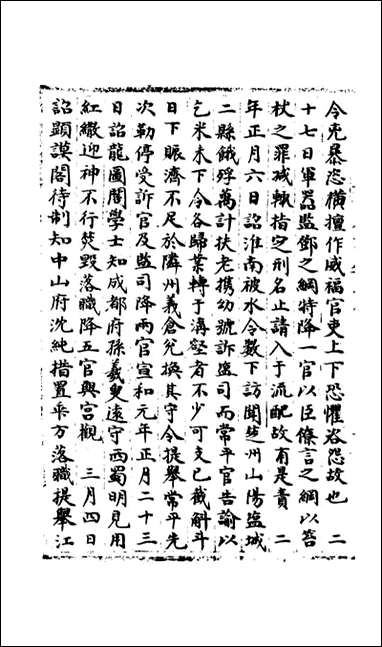 令兇暴恣橫擅作威福官吏上下恐懼咨怨故也　二
十七日軍器監鄧之綱特降一官以臣僚言之綱以笞
杖之罪减軏指定刑名止請入于流配故有是責　二
年正月六日詔淮南被水令數下訪聞楚州山陽鹽城
二縣餓殍萬計扶老携幼號訴監司而常平官告諭以
乞米未下令各歸業轉于溝壑者不少可支已截斛斗
日下賑濟不足於隣州義倉兌換其守令提舉常平先
次勒停受訴官及監司降兩官宣和元年正月二十三
日詔龍圖閣學士知成都府孫羲叟遠守西蜀明見用
紅繖迎神不行焚毀落職降五官與宮觀　三月四日
詔顯謨閣待制知中山府沈純措置乖方落職提舉江